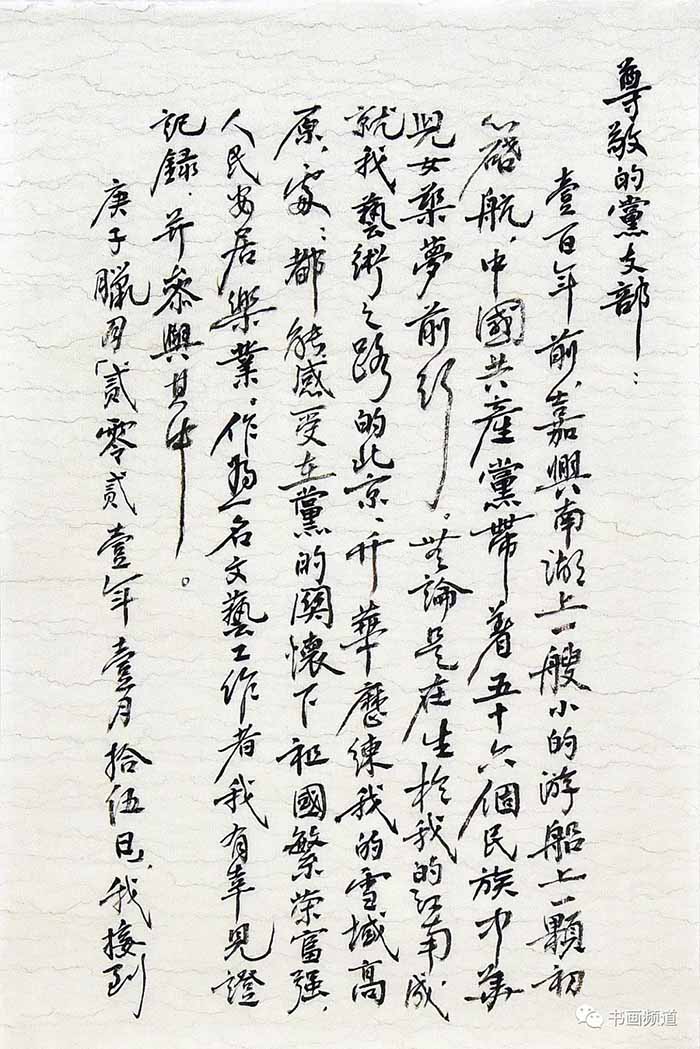 尊敬的黨支部：
壹百年前，嘉興南湖上一艘小的游船上一顆初
心啓航，中國共產黨帶着五十六個民族中華
兒女築夢前行。無論是在生於我的江南，成
就我藝術之路的北京，升華歷練我的雪域高
原，處處都能感受在黨的關懷下祖國繁榮富强，
人民安居樂業。作爲一名文藝工作者我有幸見證
記録，并參與其中。
庚子臘月貳零貳壹年壹月拾伍日，我接到
书画频道